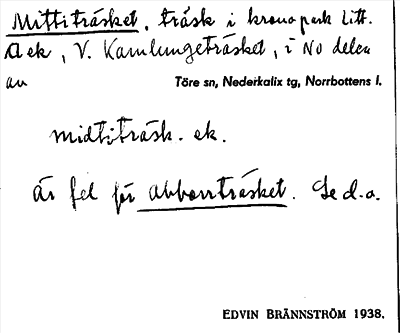 Mittiträsket, träsk i kronopark litt.
A ek, V. Kamlungeträsket, i NO delen
av Töre sn, Nederkalix tg, Norrbottens l.
midtiträsk. ek.
Är fel för Abborrträsket. Se d.o.
EDVIN BRÄNNSTRÖM 1938.